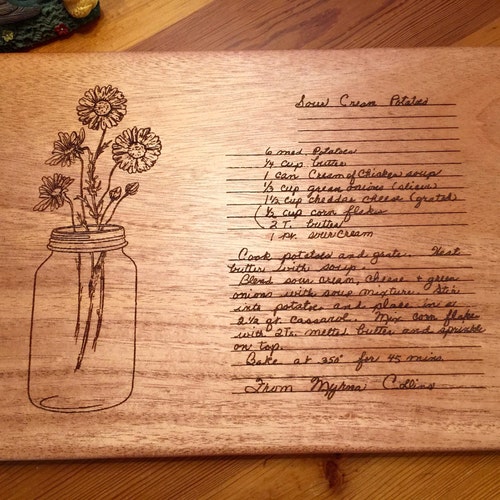 Sour Cream Potatoes
6 med. potatoes
1/4 cup butter
1 can Cream of Chicken soup
1/3 cup green onions (slices)
1 1/2 cup cheddar cheese (grated)
1/2 cup corn flakes
2 T. butter
1 pt. sour cream
Cook potatoes and grate. Heat
butter with soup.
Blend sour cream, cheese + green
onions with soup mixture. Stir
into potatoes and place in a
2 1/2 qt casserol. Mix corn flakes
with 2 T. melted butter and sprinkle
on top.
Bake at 350° for 45 mins.
From Myrna Collins